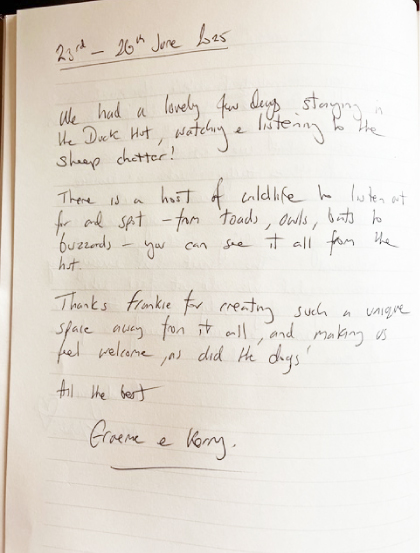 23rd – 26th June 2025
We had a lovely few days staying in
the Duck Hut, watching & listening to the
sheep chatter!
There is a host of wildlife to listen out
for and spot – from toads, owls, bats to
buzzards – you can see it all from the
hut.
Thanks Frankie for creating such a unique
space away from it all, and making us
feel welcome, as did the dogs!
All the best
Graeme &